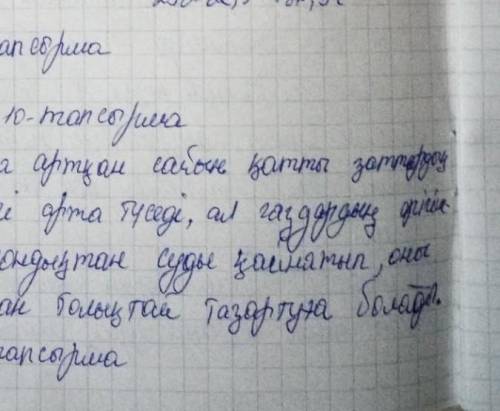 апсырма
10-тапсырма
а артқан сайын қатты заттардың
і арта түседі, ал газдардың
ондықтан суды қайнатып, оны
ан толықтай тазартуға болады.
тапсырма